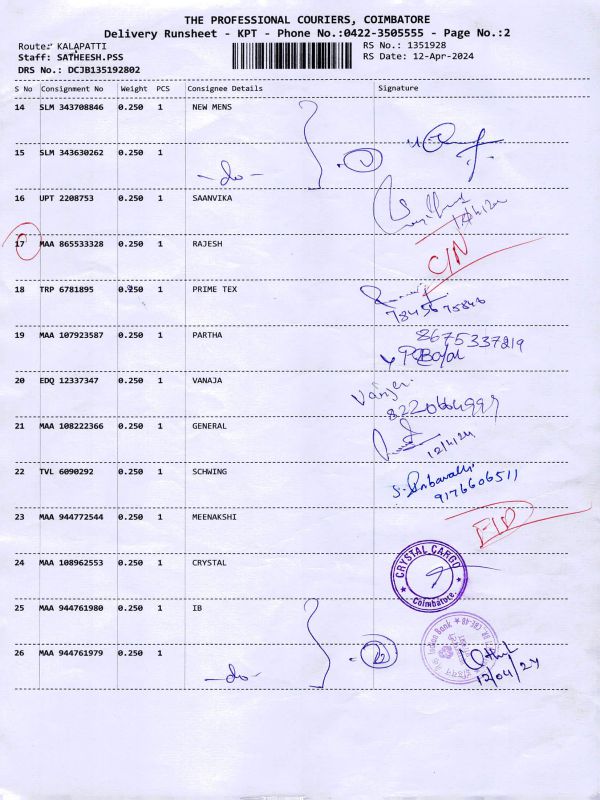 THE PROFESSIONAL COURIERS, COIMBATORE
Delivery Runsheet - KPT - Phone No.:0422-3505555 - Page No.:2
Route: KALAPATTI RS No.: 1351928
Staff: SATHEESH.PSS RS Date: 12-Apr-2024
DRS No.: DCJB135192802
S No Consignment No Weight PCS Consignee Details Signature
14 SLM 343708846 0.250 1 NEW MENS
15 SLM 343630262 0.250 1 -do-
16 UPT 2208753 0.250 1 SAANVIKA
17 MAA 865533328 0.250 1 RAJESH C/N
18 TRP 6781895 0.250 1 PRIME TEX
19 MAA 107923587 0.250 1 PARTHA 8675337219
20 EDQ 12337347 0.250 1 VANAJA
21 MAA 108222366 0.250 1 GENERAL 12/4/24
22 TVL 6090292 0.250 1 SCHWING 9176606511
23 MAA 944772544 0.250 1 MEENAKSHI
24 MAA 108962553 0.250 1 CRYSTAL CRYSTAL CARGO Coimbatore.
25 MAA 944761980 0.250 1 IB
26 MAA 944761979 0.250 1 -do- Indian Bank 12/04/24